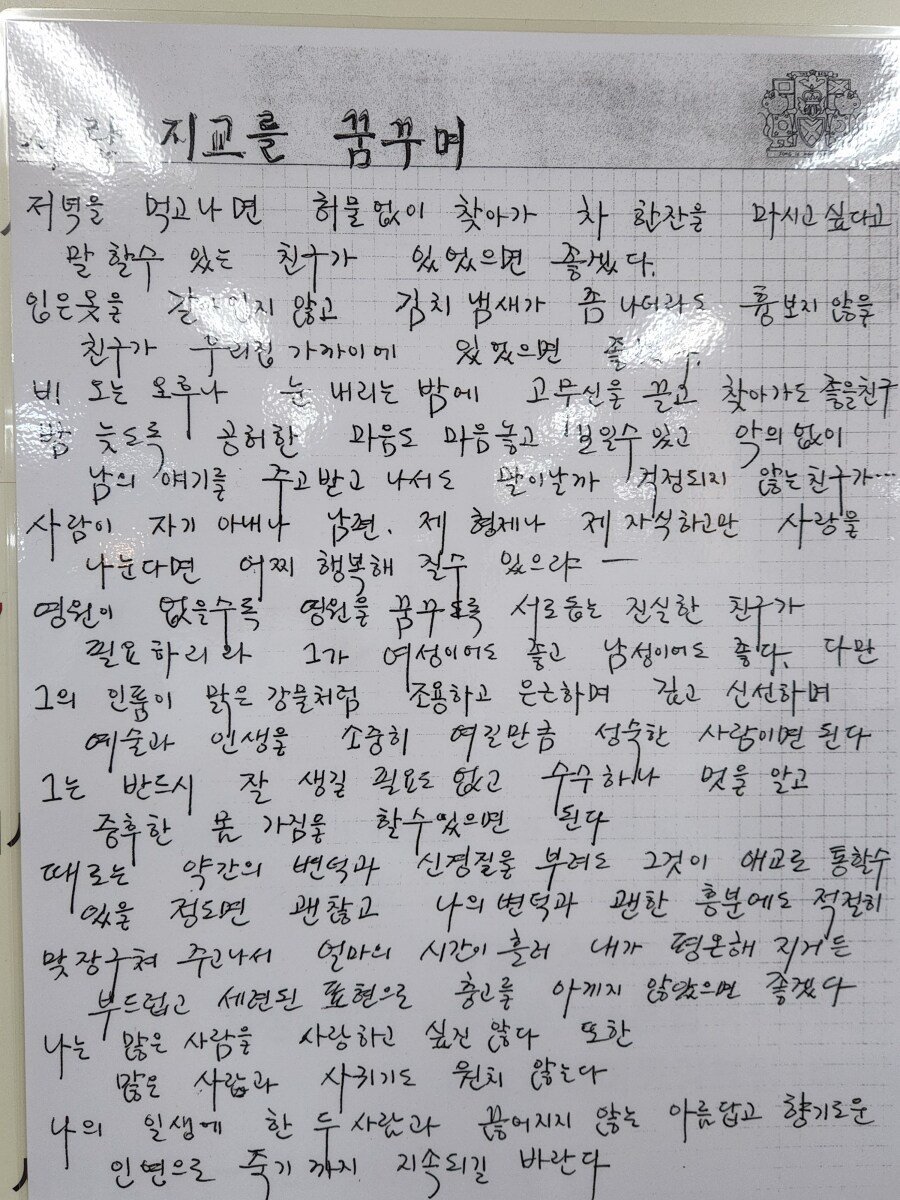 지교를 꿈꾸며
저녁을 먹고나면 허물없이 찾아가 차 한잔을 마시고 싶다고
말 할수 있는 친구가 있었으면 좋겠다.
입은옷을 않고 김치 냄새가 좀 나더라도 흉보지 않을
친구가 우리집 가까이에 있었으면
비 오는 오후나 눈 내리는 밤에 고무신을 끌고 찾아가도 좋을친구
밤 늦도록 공허한 마음도 마음놓고 보일수 있고 악의없이
남의 얘기를 주고받고 나서도 말이날까 걱정되지 않는친구가…
사람이 자기 아내나 남편. 제 형제나 제 자식하고만 사랑을
나눈다면 어찌 행복해 질수 있으랴 —
영원이 없을수록 영원을 꿈꾸도록 서로돕는 진실한 친구가
필요하리라 그가 여성이어도 좋고 남성이어도 좋다. 다만
그의 인품이 맑은 강물처럼 조용하고 은근하며 깊고 신선하며
예술과 인생을 소중히 여길만큼 성숙한 사람이면 된다
그는 반드시 잘 생길 필요도 없고 수수하나 멋을 알고
중후한 몸 가짐을 할수있으면 된다
때로는 약간의 변덕과 신경질을 부려도 그것이 애교로 통할수
있을 정도면 괜찮고 나의 변덕과 괜한 흥분에도 적절히
맞장구쳐 주고나서 얼마의 시간이 흘러 내가 평온해 지거든
부드럽고 세련된 표현으로 충고를 아끼지 않았으면 좋겠다
나는 많은 사람을 사랑하고 싶진 않다 또한
많은 사람과 사귀기도 원치 않는다
나의 일생에 한 두 사람과 끊어지지 않는 아름답고 향기로운
인연으로 죽기 까지 지속되길 바란다